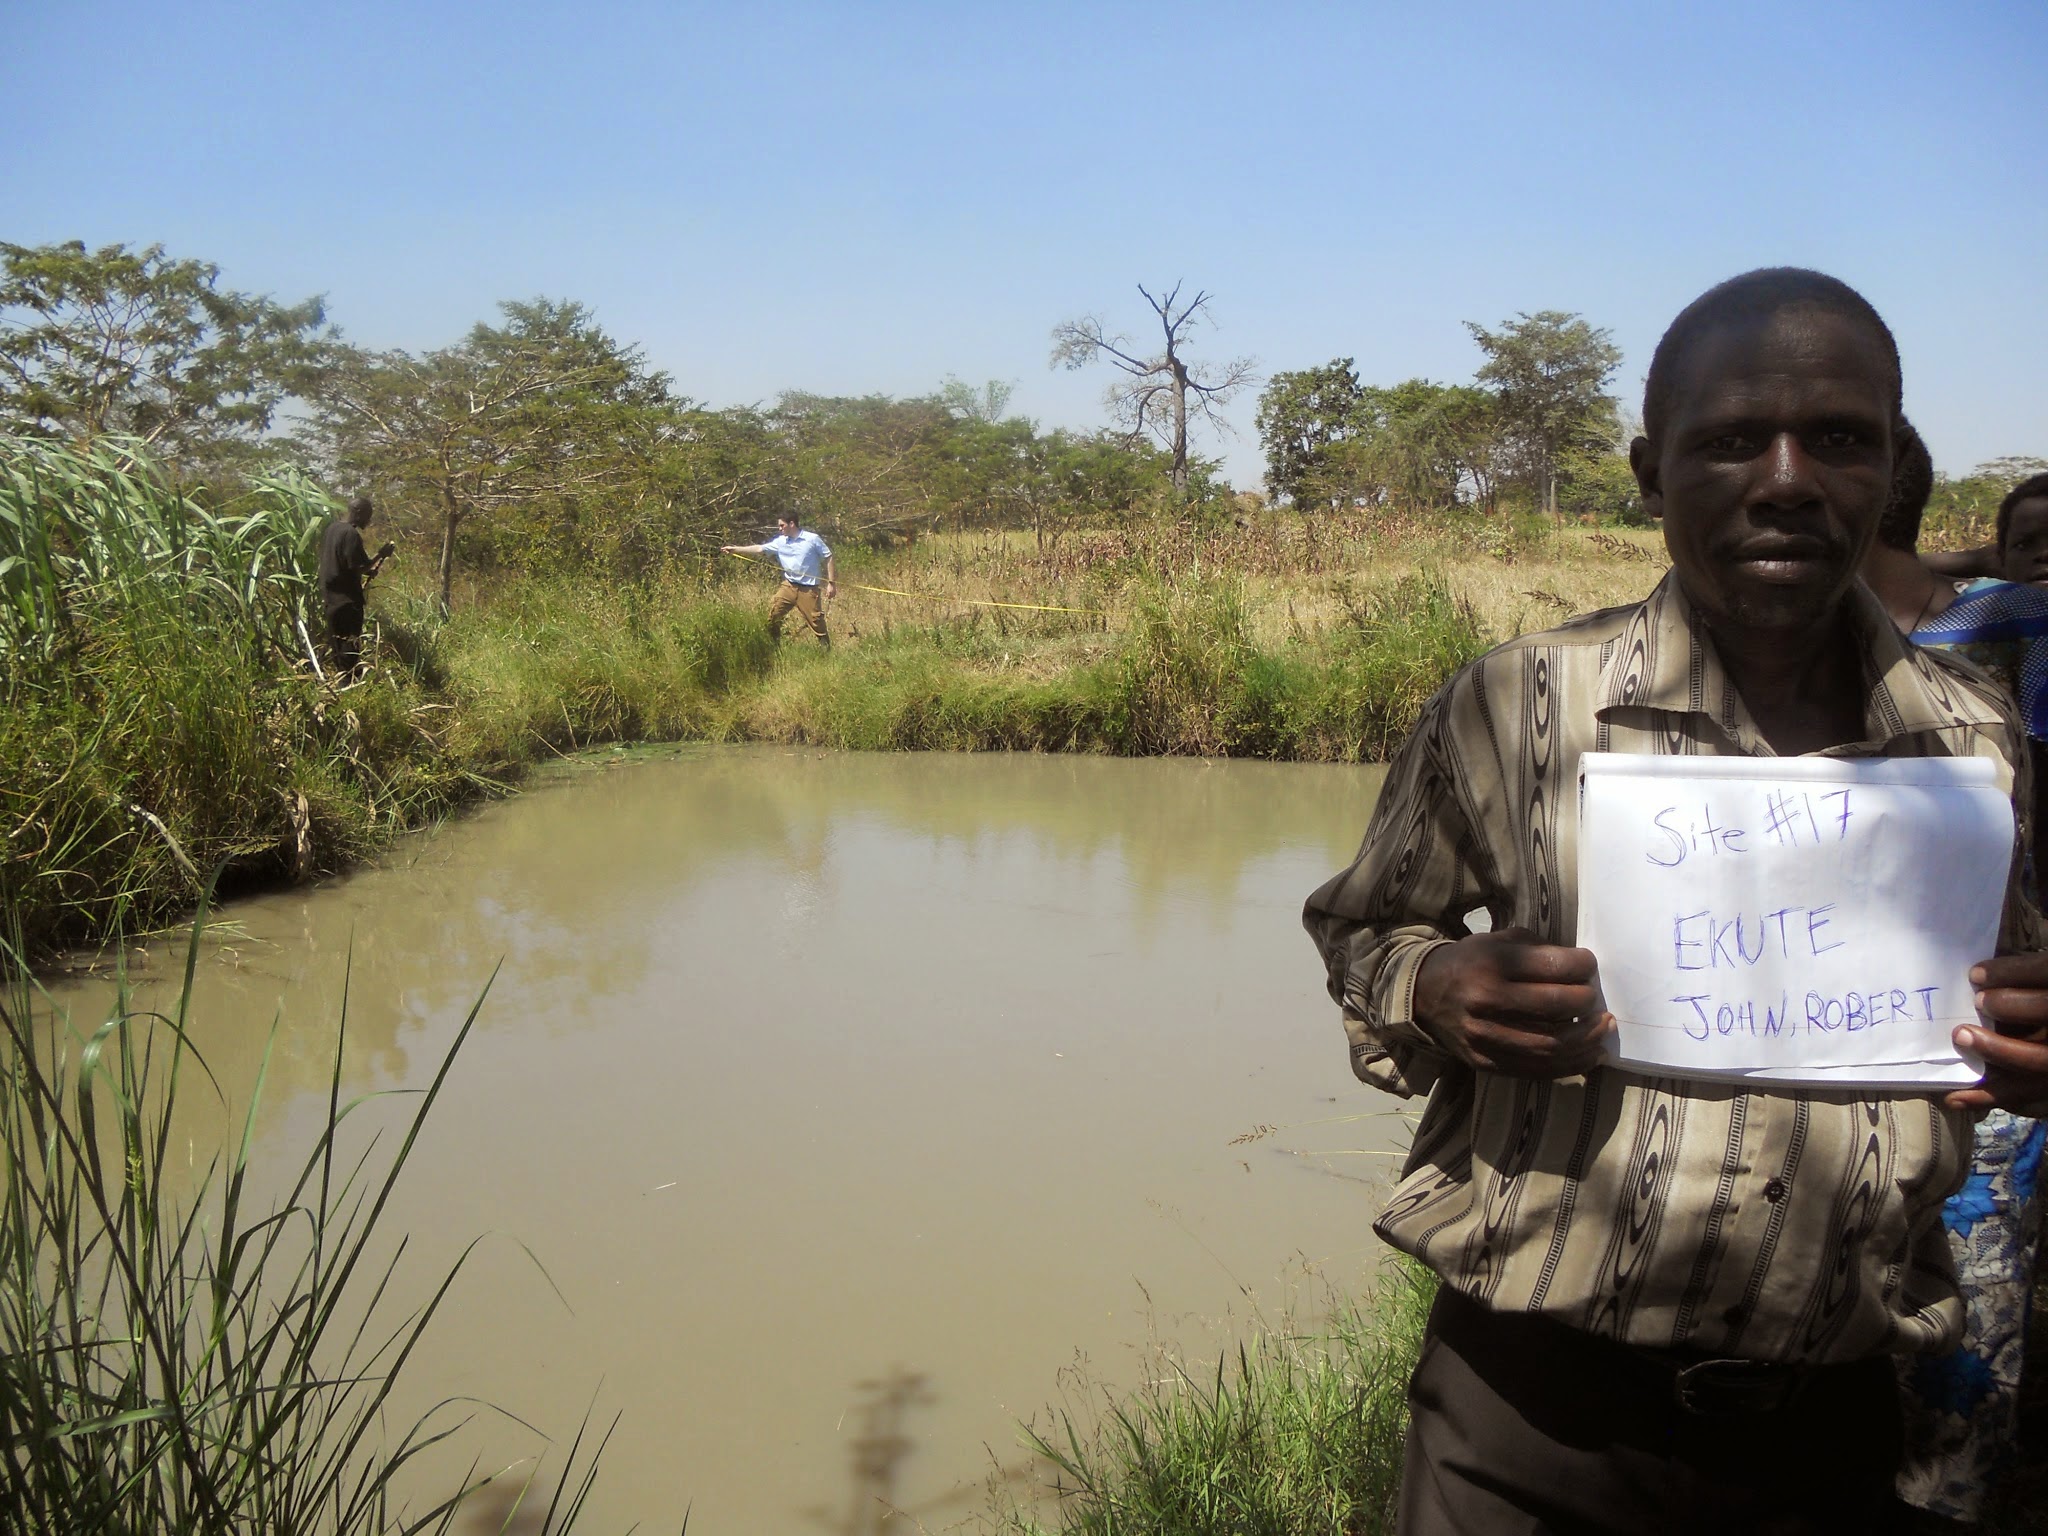 Site #17
EKUTE
JOHN, ROBERT